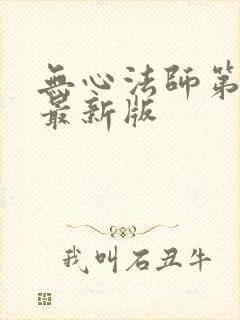 無心法師第
最新版
我叫石丑牛